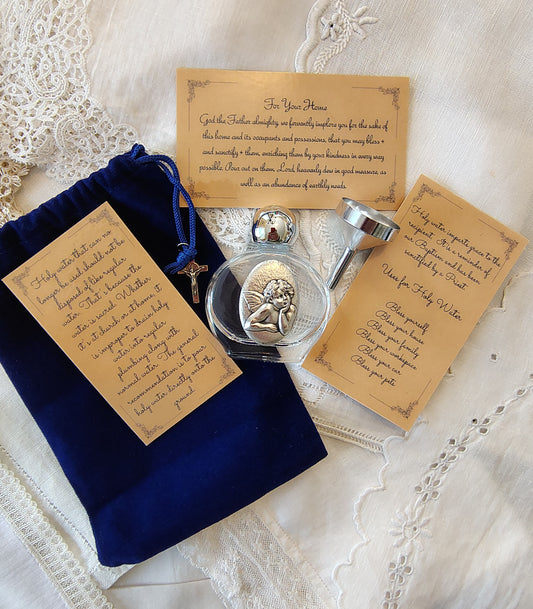 For Your Home
God the Father almighty, we fervently implore you for the sake of
this home and its occupants and possessions, that you may bless +
and sanctify + them, enriching them by your kindness in every way
possible. Pour out on them, Lord, heavenly dew in good measure, as
well as an abundance of earthly needs.
Holy water that can no
longer be used should not be
disposed of like regular
water. That's because the
water is sacred. Whether
it's at church or at home, it
is improper to drain holy
water into regular
plumbing along with
normal water. The general
recommendation is to pour
holy water directly onto the
ground.
Holy water imparts grace to the
recipient. It is a reminder of
our Baptism and has been
sanctified by a Priest.
Uses for Holy Water
Bless yourself
Bless your house
Bless your family
Bless your workspace
Bless your car
Bless your pets